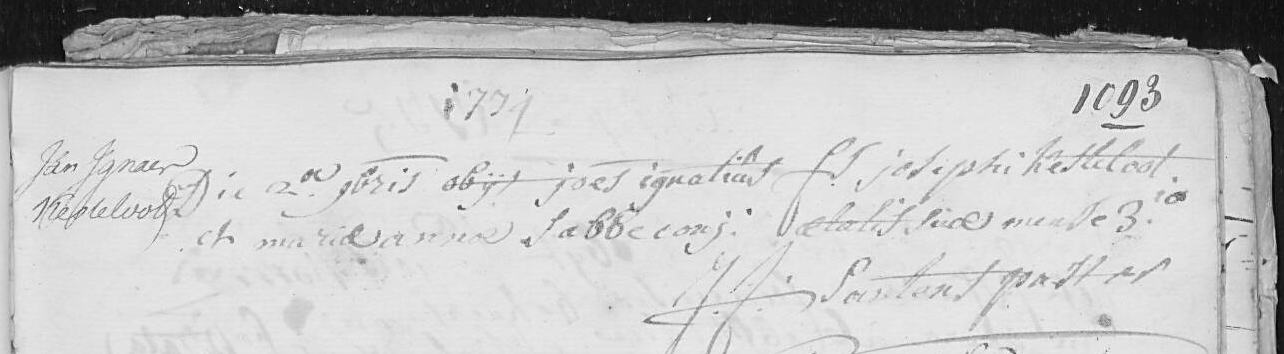 1774
1093
Jan Ignaes
Kestelvolt
Die 2a 9bris obijt joes ignatius fs josephi Kesteloot
et mariæ annæ Sabbe conj: ætatis suæ mense 3.io
J: J: Santens pastor